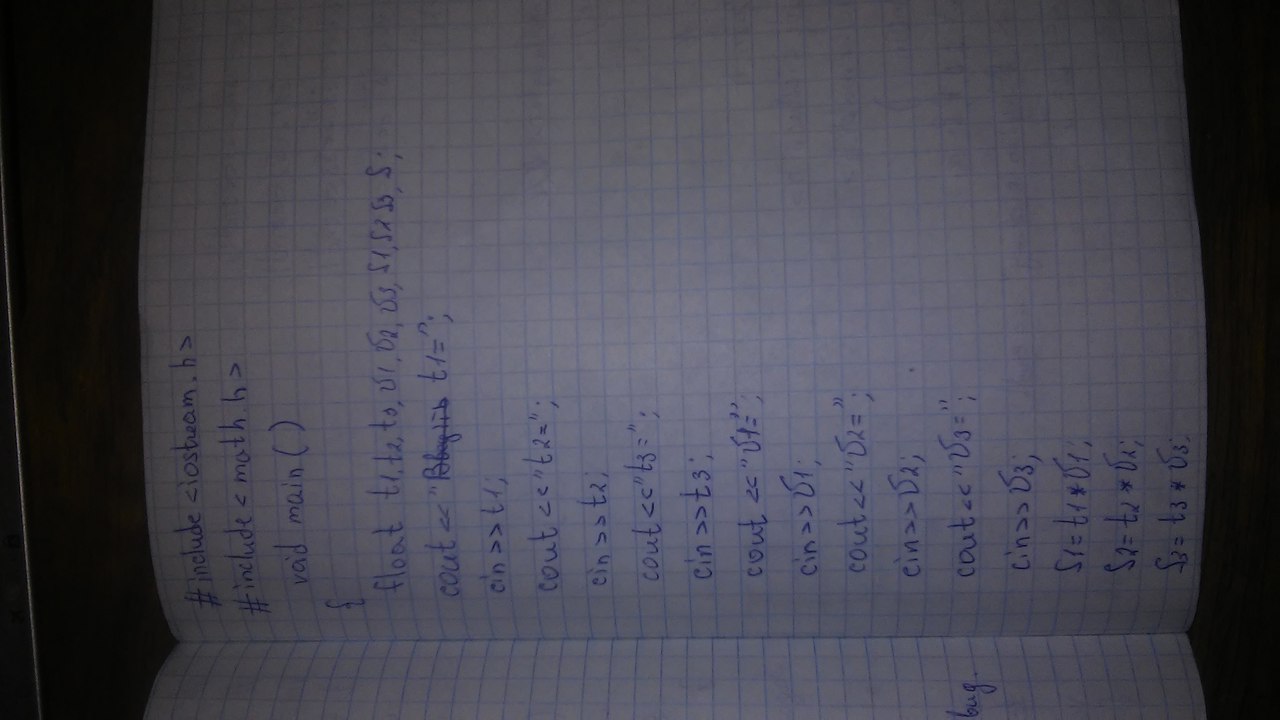 #include <iostream.h>
#include < math.h>
void main ( )
{
float t1, t2, t3, v1, v2, v3, S1, S2 S3, S;
cout << " t1=";
cin >> t1;
cout << "t2=";
cin >> t2;
cout << "t3=";
cin >> t3;
cout << "v1=";
cin >> v1;
cout << "v2=";
cin >> v2;
bug.
cout << "v3=";
cin >> v3;
S1= t1 * v1;
S2= t2 * v2;
S3= t3 * v3;